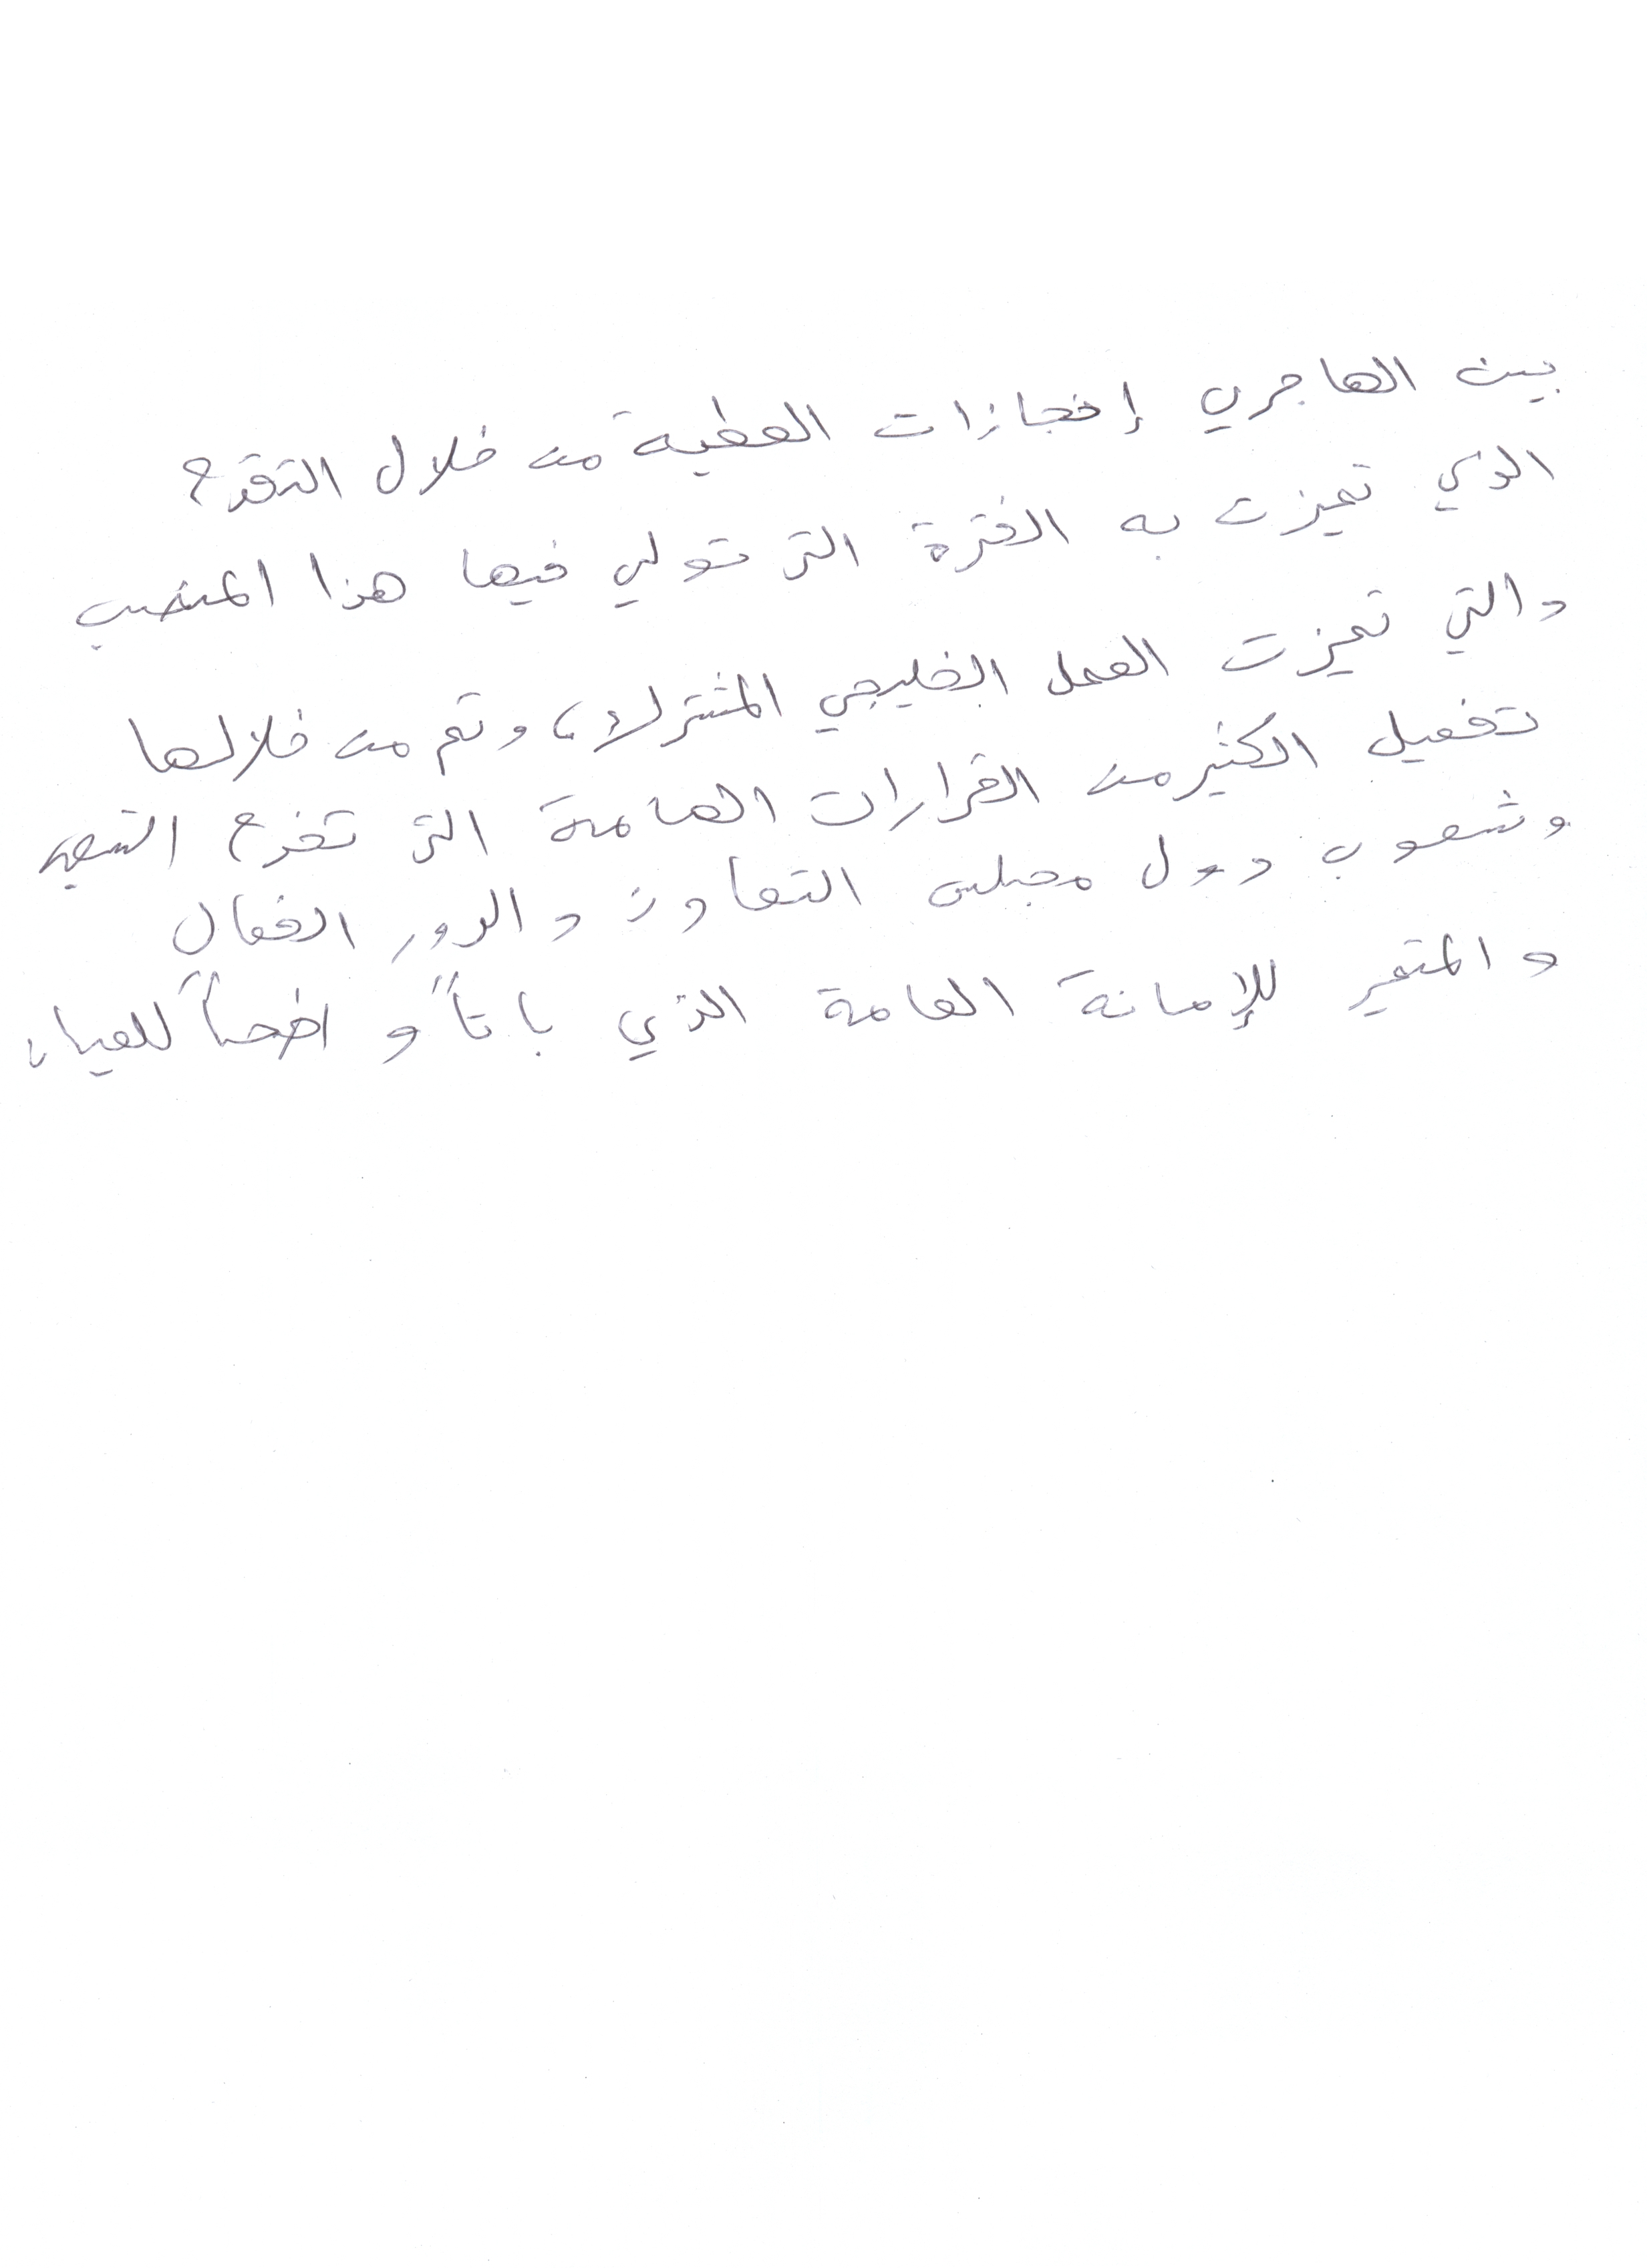 بين الهاجري إنجازات العطية من خلال التقدم
الذي تميزت به الفترة التي تولي فيها هذا المنصب
والتي تميزت العمل الخليجي المشترك، وتم من خلالها
تفعيل الكثير من القرارات الهامة التي تخدم
وشعوب دول مجلس التعاون والدور الفعال
والمتميز للإمانة العامة الذي باتاً واضحاً للعيان